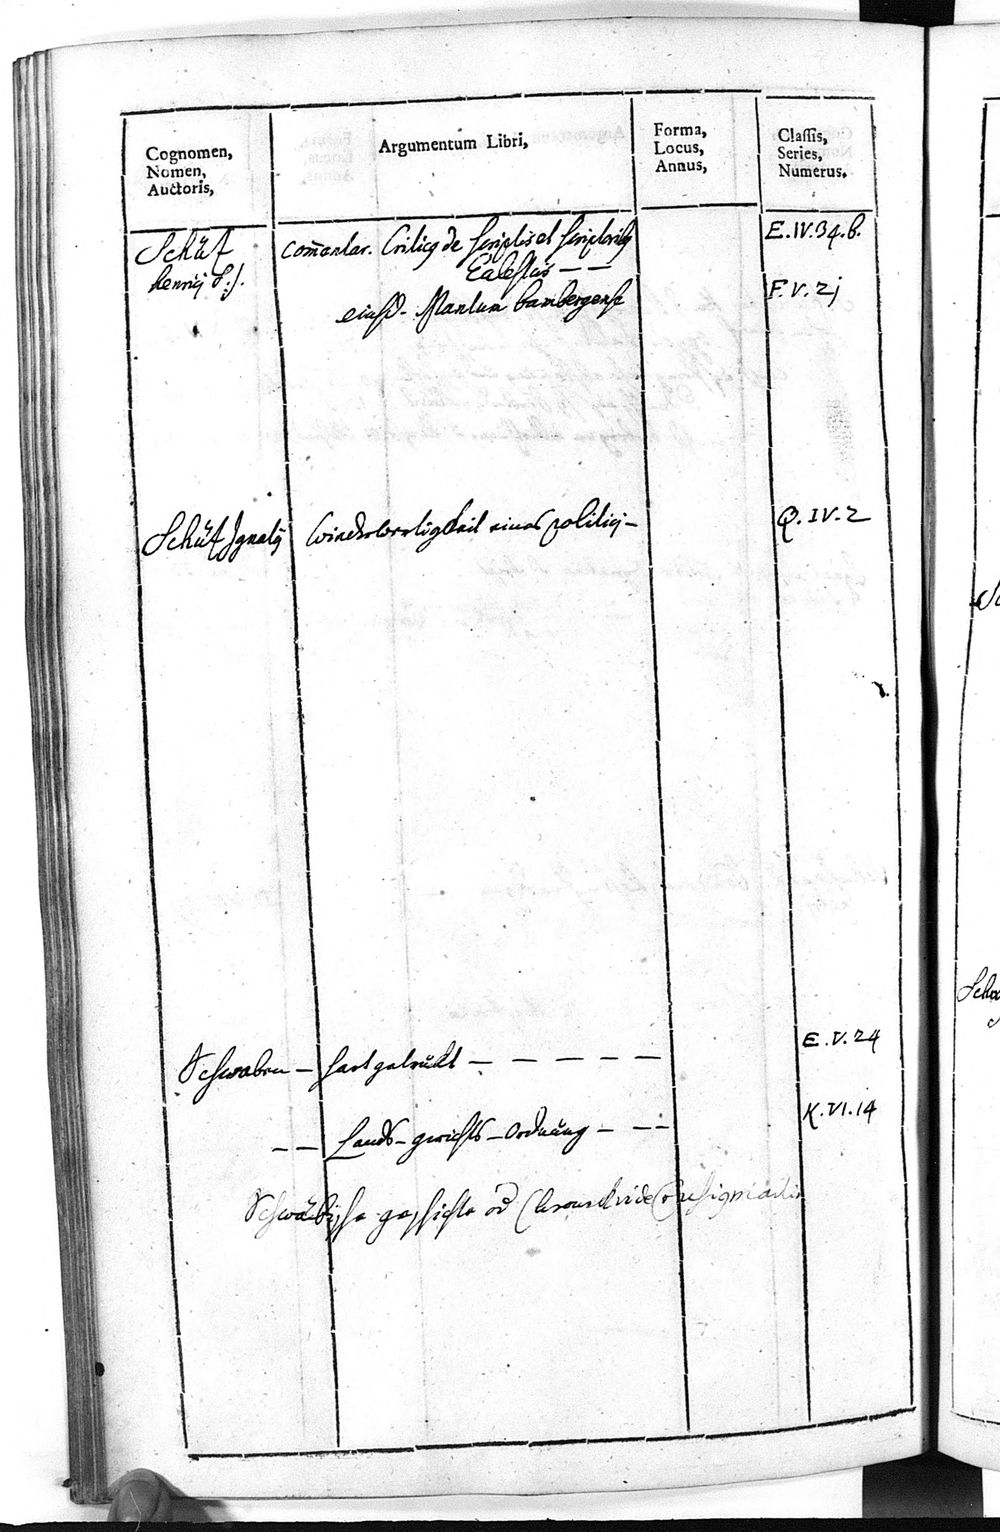 Cognomen,
Nomen,
Auctoris,
Argumentum Libri,
Forma,
Locus,
Annus,
Classis,
Series,
Numerus.
Schüz
henrici S: J.
com̄entar. Criticq de scriptis et scriptoribq
Ecclesticis — —
E. IV. 34. b.
eiusd. Mantum bambergense
F. V. 2j
Schüz Ignatij
Wiederwertigkeit eines politici —
Q. IV. 2
Schwaben — hart getruckt — — — — —
E. V. 24
— — Lands-gerichts-Ordnung — — —
K. VI. 14
Schwäbische geschichte od Chronick vide